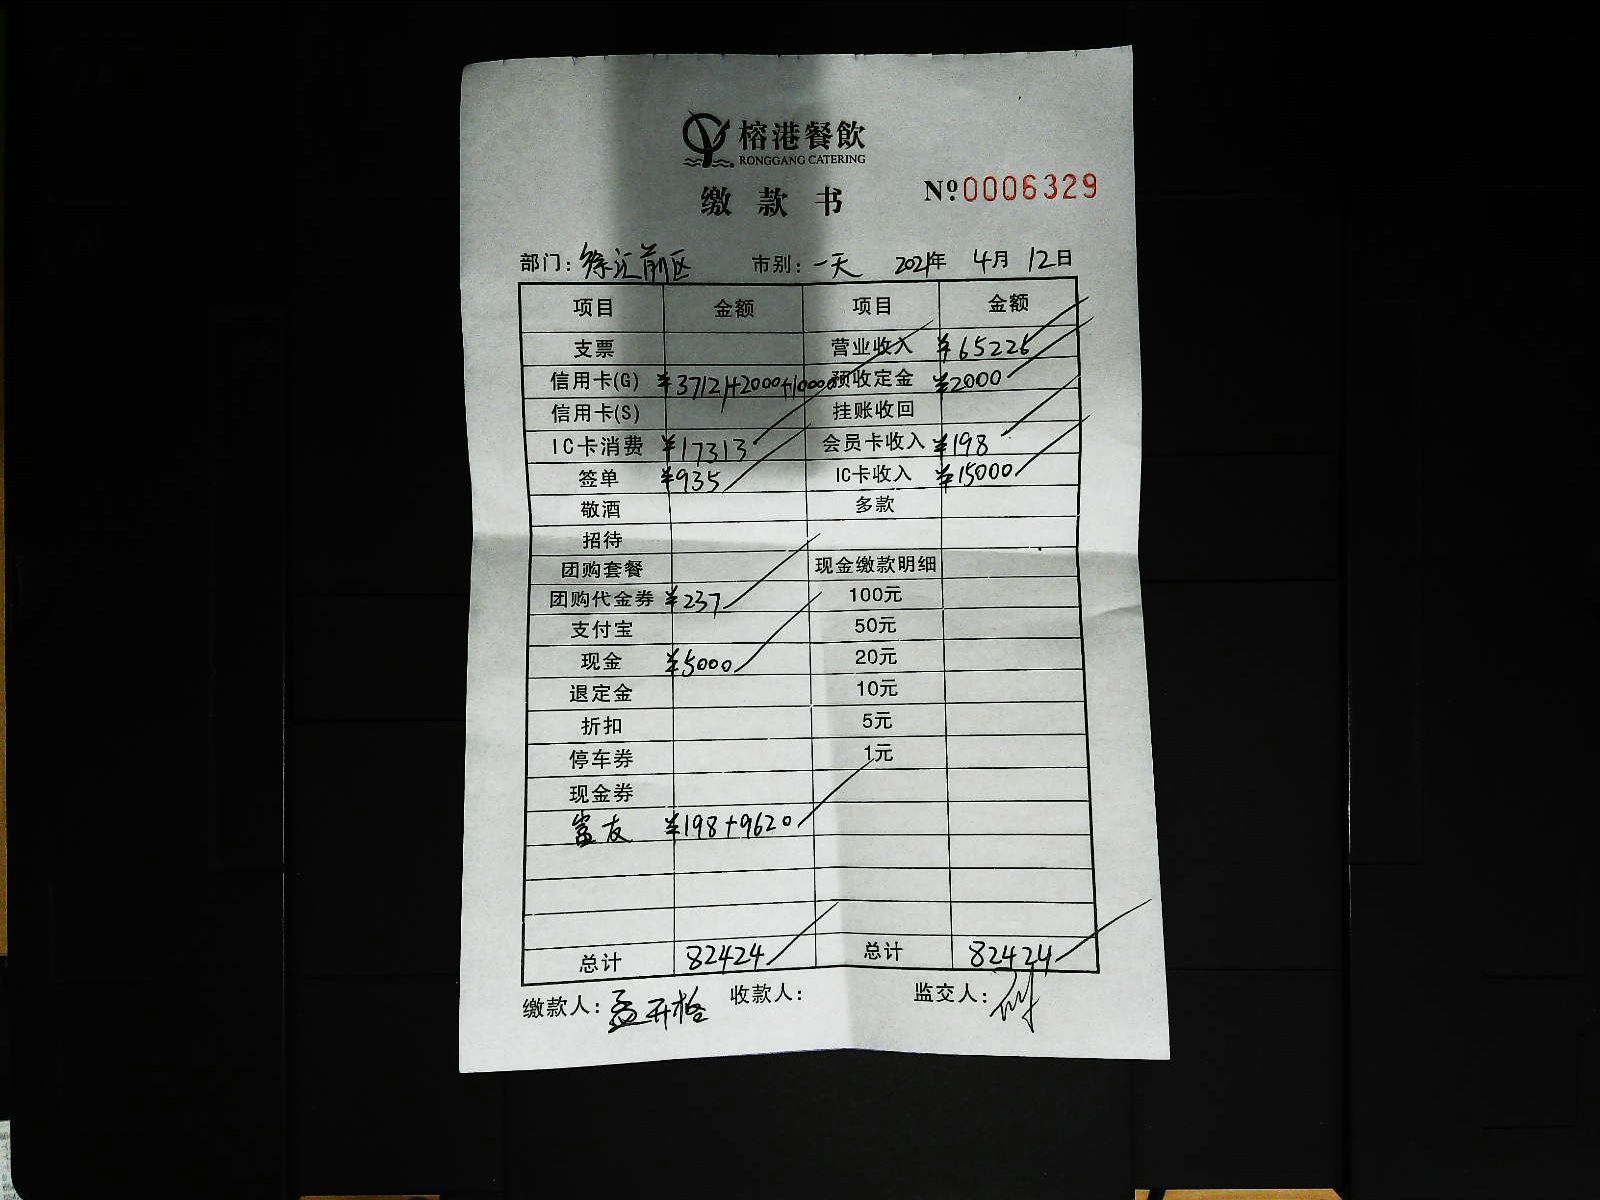 榕港餐飲
RONGGANG CATERING
缴款书 Nº:0006329
部门: 徐汇前区 市别: 一天 2021年 4月 12日
项目 金额 项目 金额
支票 营业收入 ¥65226
信用卡(G) ¥37121+2000+10000 预收定金 ¥2000
信用卡(S) 挂账收回
IC卡消费 ¥17313 会员卡收入 ¥198
签单 ¥935 IC卡收入 ¥15000
敬酒 多款
招待
团购套餐 现金缴款明细
团购代金券 ¥237 100元
支付宝 50元
现金 ¥5000 20元
退定金 10元
折扣 5元
停车券 1元
现金券
富友 ¥198+9620
总计 82424 总计 82424
缴款人: 孟开格 收款人: 监交人: